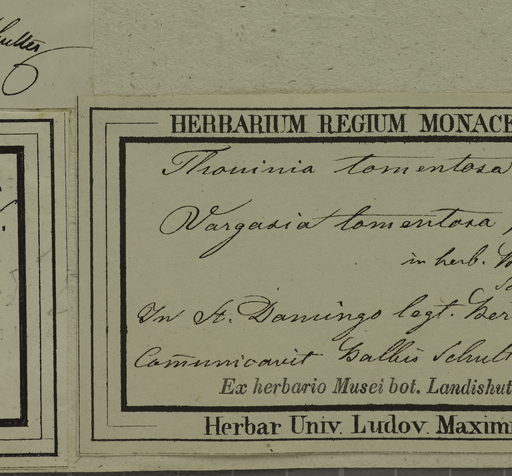 HERBARIUM REGIUM MONACE
Thouinia tomentosa
Vargasia tomentosa
in herb.
In St. Domingo legt. Ber
Comunicavit Balbis Schult
Ex herbario Musei bot. Landishut
Herbar Univ. Ludov. Maximi